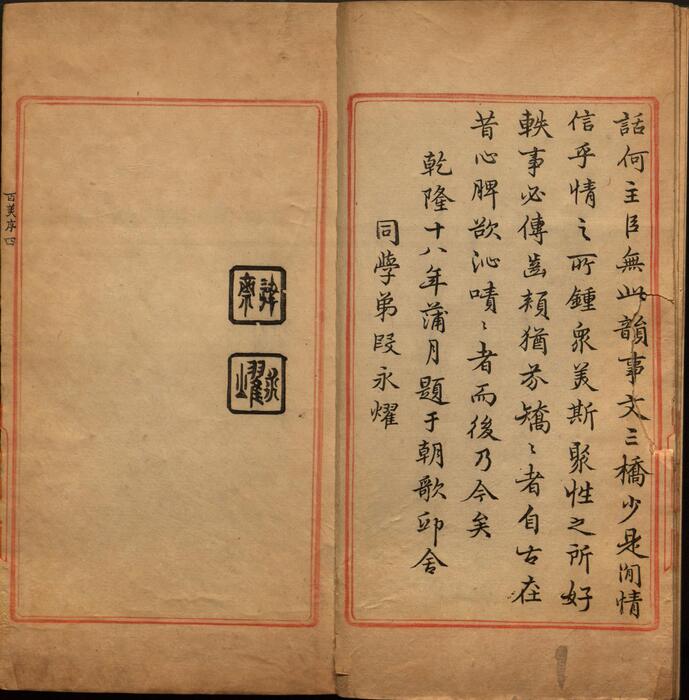 話何主臣無此韻事文三橋少是閒情
信乎情之所鍾衆美斯聚性之所好
軼事必傳齒頰猶芬矯〻者自古在
昔心脾欲沁嘖〻者而後乃今矣
乾隆十八年蒲月題于朝歌邱舍
同學弟段永燿
齋
永燿
百美序 四